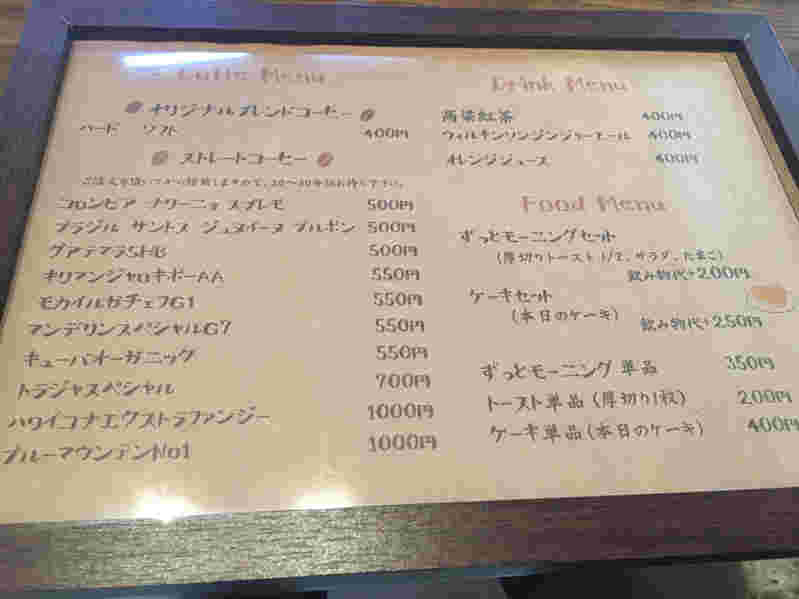 Menu
オリジナルブレンドコーヒー
ハード ソフト 400円
ストレートコーヒー
コロンビア ナリーニョ スプレモ 500円
ブラジル サントス ジュヌイーヌ ブルボン 500円
グアテマラSHB 500円
キリマンジャロキボーAA 550円
モカイルガチェフG1 550円
マンデリンスペシャルG7 550円
キューバオーガニック 550円
トラジャスペシャル 700円
ハワイコナエクストラファンシー 1000円
ブルーマウンテンNo1 1000円
Drink Menu
高梁紅茶 400円
ウィルキンソンジンジャーエール 400円
オレンジジュース 400円
Food Menu
ずっとモーニングセット
(厚切りトースト1/2、サラダ、たまご)
飲み物代+200円
ケーキセット
(本日のケーキ)
飲み物代+250円
ずっとモーニング単品 350円
トースト単品(厚切り1枚) 200円
ケーキ単品(本日のケーキ) 400円